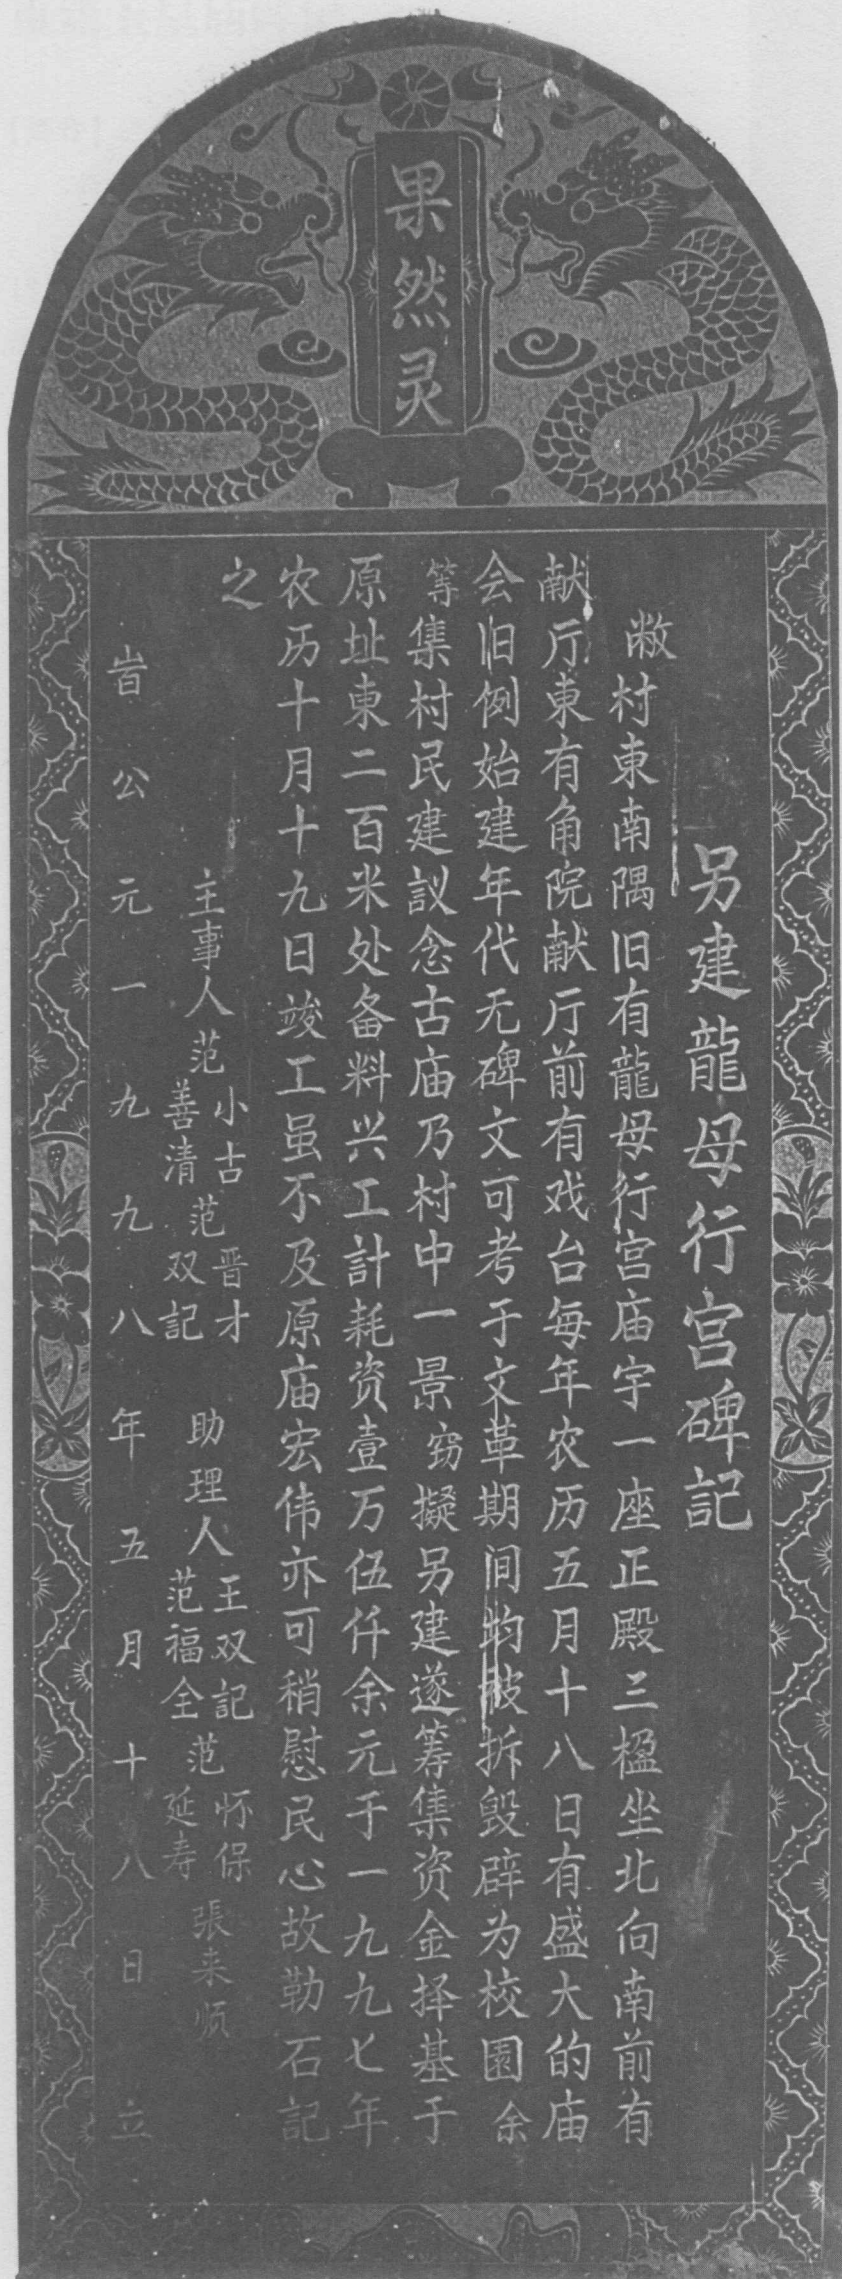 果然灵
另建龍母行宫碑記
敝村東南隅旧有龍母行宫庙宇一座正殿三楹坐北向南前有
献厅東有角院献厅前有戏台每年农历五月十八日有盛大的庙
会旧例始建年代无碑文可考于文革期间均被拆毁辟为校園余
等集村民建議念古庙乃村中一景窃擬另建遂筹集资金择基于
原址東二百米处备料兴工計耗资壹万伍仟余元于一九九七年
农历十月十九日竣工虽不及原庙宏伟亦可稍慰民心故勒石記
之
主事人范小古善清范晋才双記 助理人王双記范福全范怀保延寿張来顺
旹公元一九九八年五月十八日立